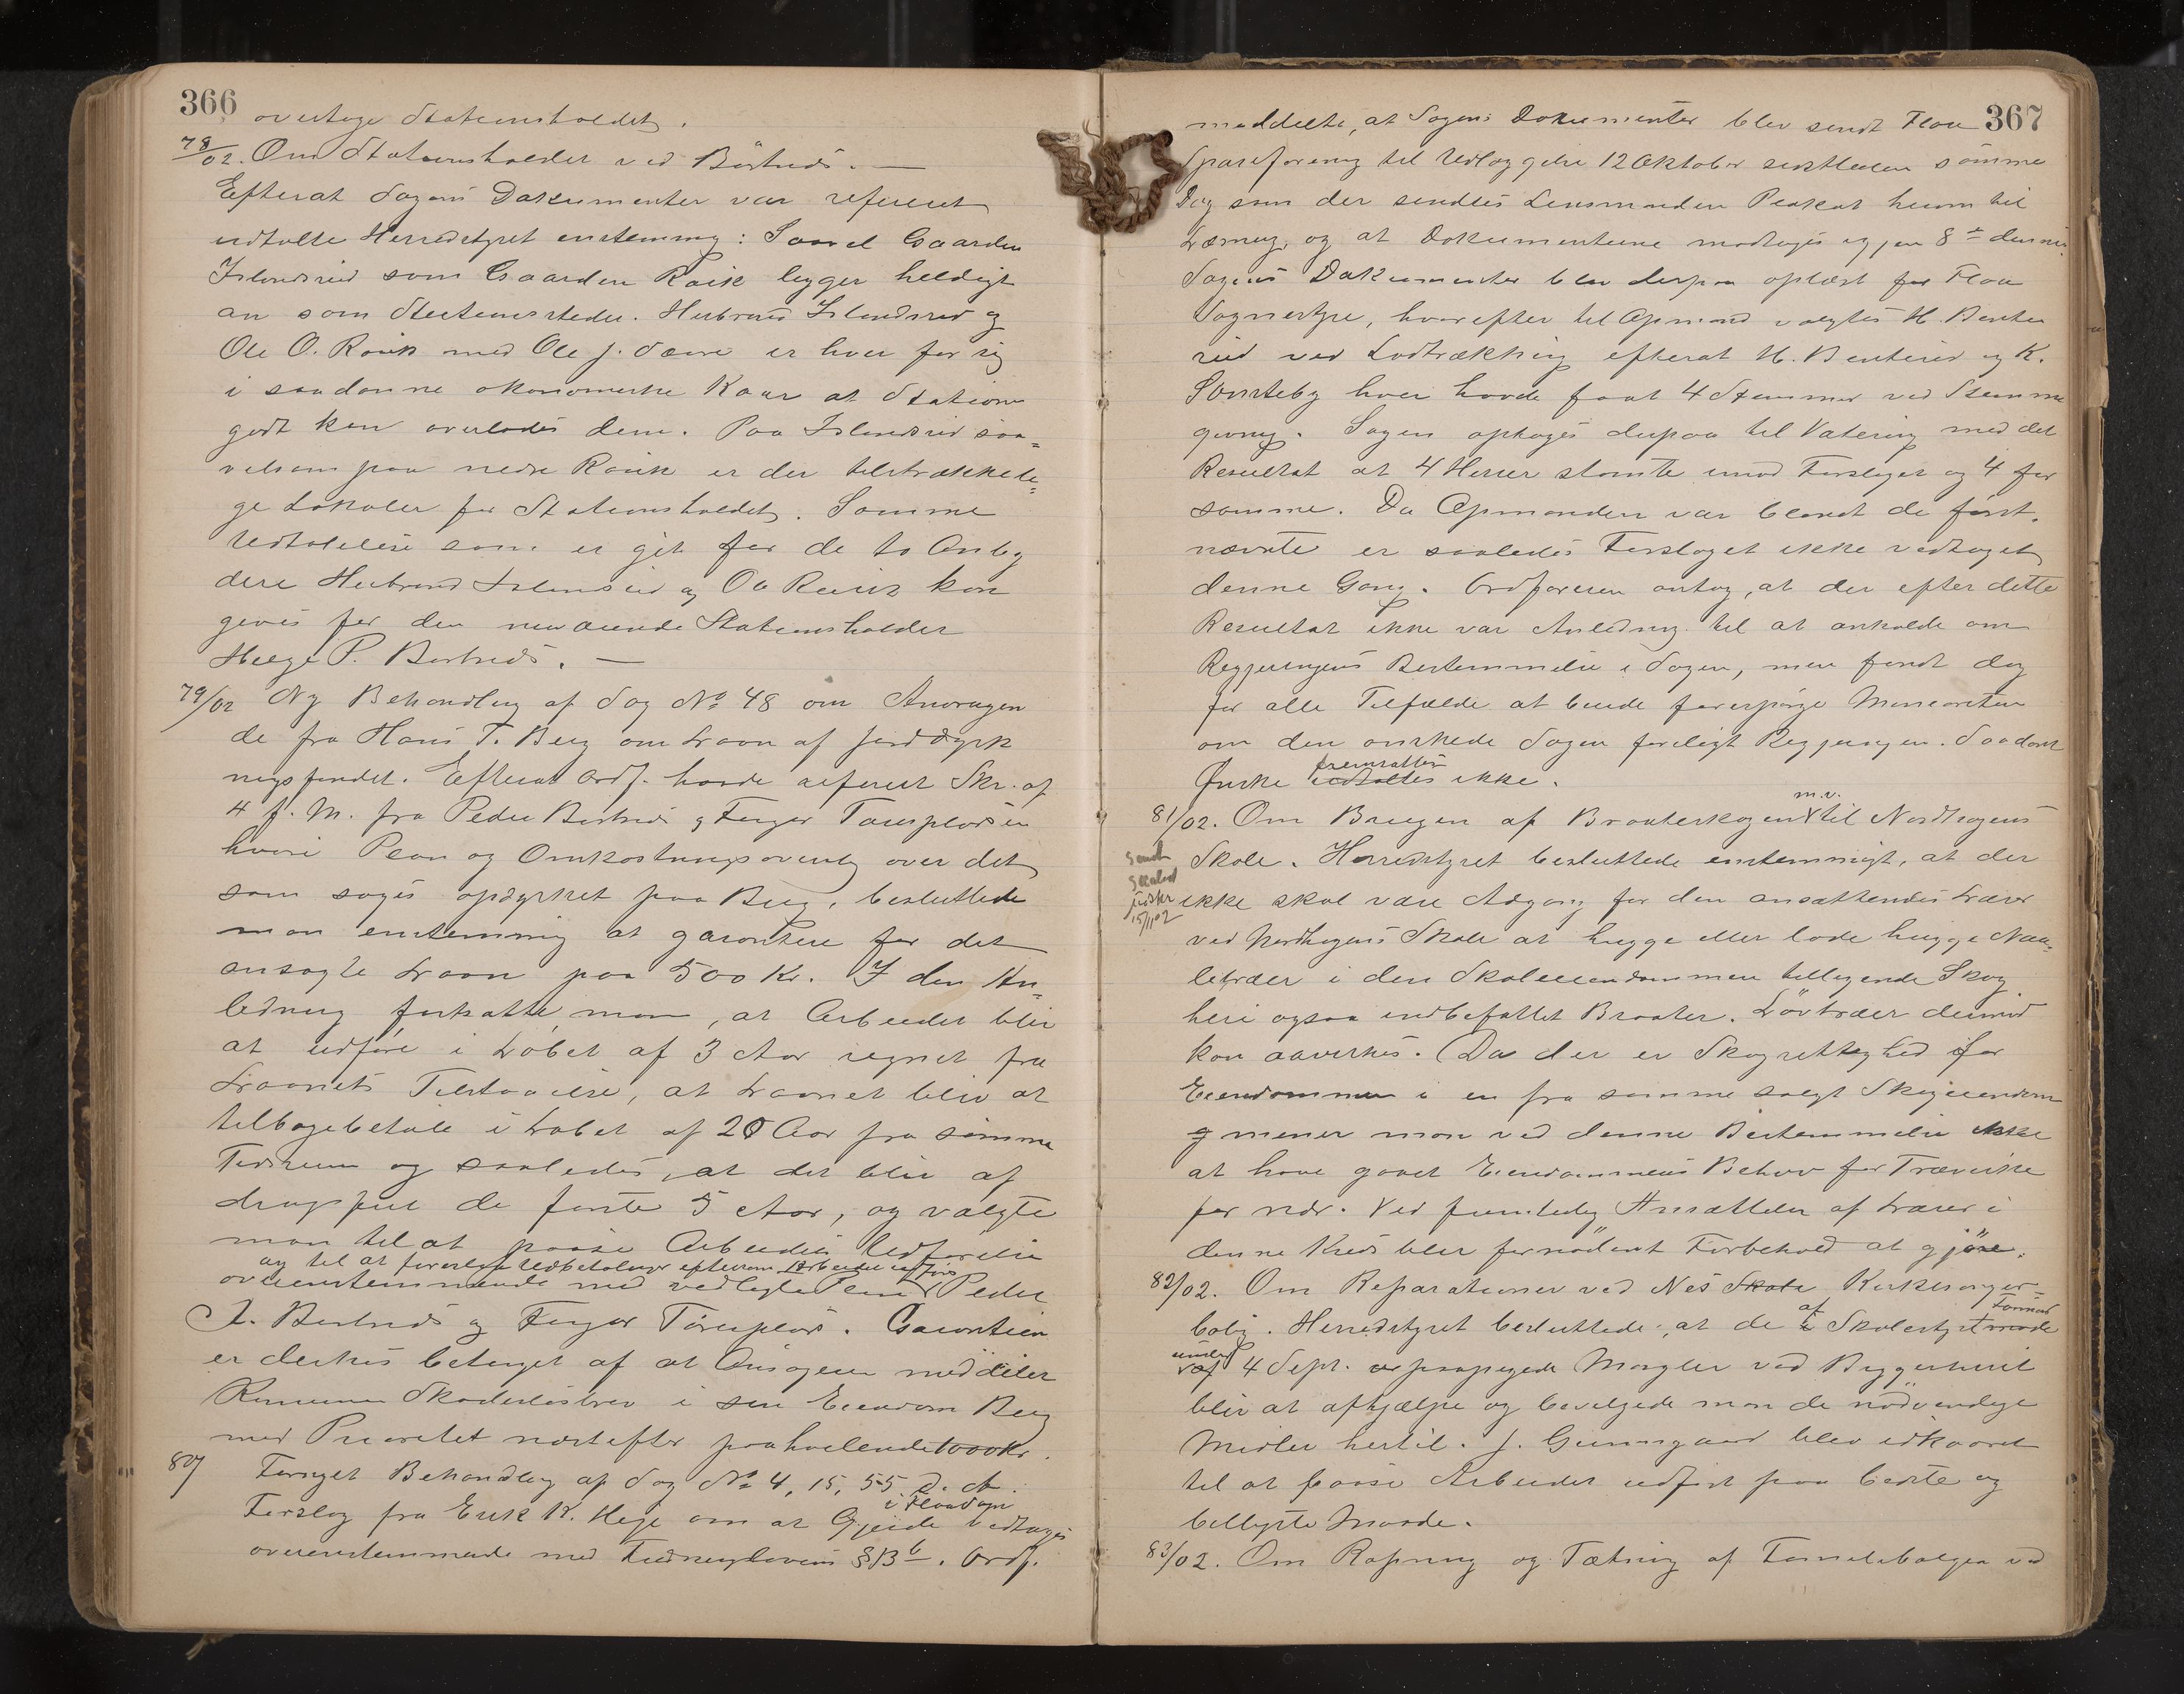 366
overtage Stationsholdet.
78/02. Om Stationsholdet ved Börtneds. —
Efterat Sagens Dokumenter var refereret
udtalte Herredstyret enstemmig: Saavel Gaarden
Islandsrud som Gaarden Roik ligger heldigt
an som Stationssteder. Herbrand Islandsrud og
Ole O. Roik med Ole J. Sævre er hver for sig
i saadanne økonomiske Kaar at Station
godt kan overlades dem. Paa Islandsrud saa=
velsom paa nedre Roik er der tilstrækkeli=
ge Lokaler for Stationsholdet. Samme
Udtalelse som er git for de to Anby
dere Herbrand Islandsrud og Ole Roik kan
gives for den nuværende Stationsholder
Helge P. Börtneds. —
79/02 Ny Behandling af Sag No 48 om Andragen
de fra Hans T. Berg om Laan af Jorddyrk
ningsfondet. Efterat Ordf. havde refereret Skr. af
4 f. M. fra Peder Börtneds og Finger Torsplass
hvori Plan og Omkostningsoverslag over det
som søges opdyrket paa Berg, besluttede
man enstemmig at garantere for det
ansøgte Laan paa 500 Kr. I den An=
ledning fortsatte man, at Arbeidet blir
at udføre i Løbet af 3 Aar regnet fra
Laanets Tilstaaelse, at Laanet bliv at
tilbagebetale i Løbet af 20 Aar fra samme
Tidsrum og saaledes, at det blir af
dragsfrit de første 5 Aar, og valgte
man til at paase Arbeidets Udførelse
og til at forestaa Udbetalinger eftersom Arbeidet udføres
overenstemmende med vedlagte Plan Peder
A. Börtneds og Finger Torsplass. Garantien
er derhos betinget af at Ansøgeren meddeler
Kommunen Skadesløsbrev i sin Eiendom Berg
med Prioritet næst efter paahvilende 1000 Kr.
80/ Fornyet Behandling af Sag No 4, 15, 55 d. A.
Forslag fra Erik K. Hege om at Gjeide i Flaa Sogn vedtages
overenstemmende med Fredningslovens § 13 b. Ordf.
367
meddelte, at Sagens Dokumenter blev sendt Flaa
Spareforening til Udlæggelse 12 Oktober sidstleden samme
Dag som der sendtes Lensmanden Plakat herom til
Læsning, og at Dokumenterne modtoges igjen 8de dennes.
Sagens Dokumenter blev derpaa oplæst for Flaa
Sognestyre, hvorefter til Opmand valgtes H. Bente
rud ved Lodtrækking efterat H. Benterud og K.
Sønsteby hver havde faat 4 Stemmer ved Stemme
givning. Sagen optoges derpaa til Votering med det
Resultat at 4 Herrer stemte imod Forslaget og 4 for
samme. Da Opmanden var blandt de først.
nævnte er saaledes Forslaget ikke vedtaget
denne Gang. Ordføreren antog, at der efter dette
Resultat ikke var Anledning til at anholde om
Regjeringens Bestemmelse i Sagen, men fandt dog
for alle Tilfælde at burde forespørge Minoriteten
om den ønskede Sagen forelagt Regjeringen. Saadant
Ønske udtaltes fremsattes ikke.
81/02. Om Brugen af Braaterskogen m.v. til Nordhagens
Skole. Herredstyret besluttede enstemmigt, at der
ikke skal være Adgang for den ansættendes Lærer
ved Nordhagens Skole at hugge eller lade hugge Naa=
letræer i den Skoleeiendommen tilliggende Skog
heri ogsaa indbefattet Braaten. Lövtræer derimod
kan aavirkes. Da der er Skogrettighed for
Eiendommen i en fra samme solgt Skogeiendom
mener man ved denne Bestemmelse ikke
at have gaaet Eiendommens Behov for Trævirke
for nær. Ved fremtidig Ansættelse af Lærer i
denne Kreds bliver fornødent Forbehold at gjöre.
82/02. Om Reparationer ved Nes Skole Kirkesanger=
bolig. Herredstyret besluttede, at de af Skolestyrets Formand
under 4 Sept. paapegede Mangler ved Bygningen
blir at afhjælpe og bevilgede man de nödvendige
Midler hertil. J. Gunnsgaard blev udkaaret
til at paase Arbeidet udført paa bedste og
billigste Maade.
83/02. Om Rapning og Tætning af Tømmerbolgen ved
Sendt
15/11 02